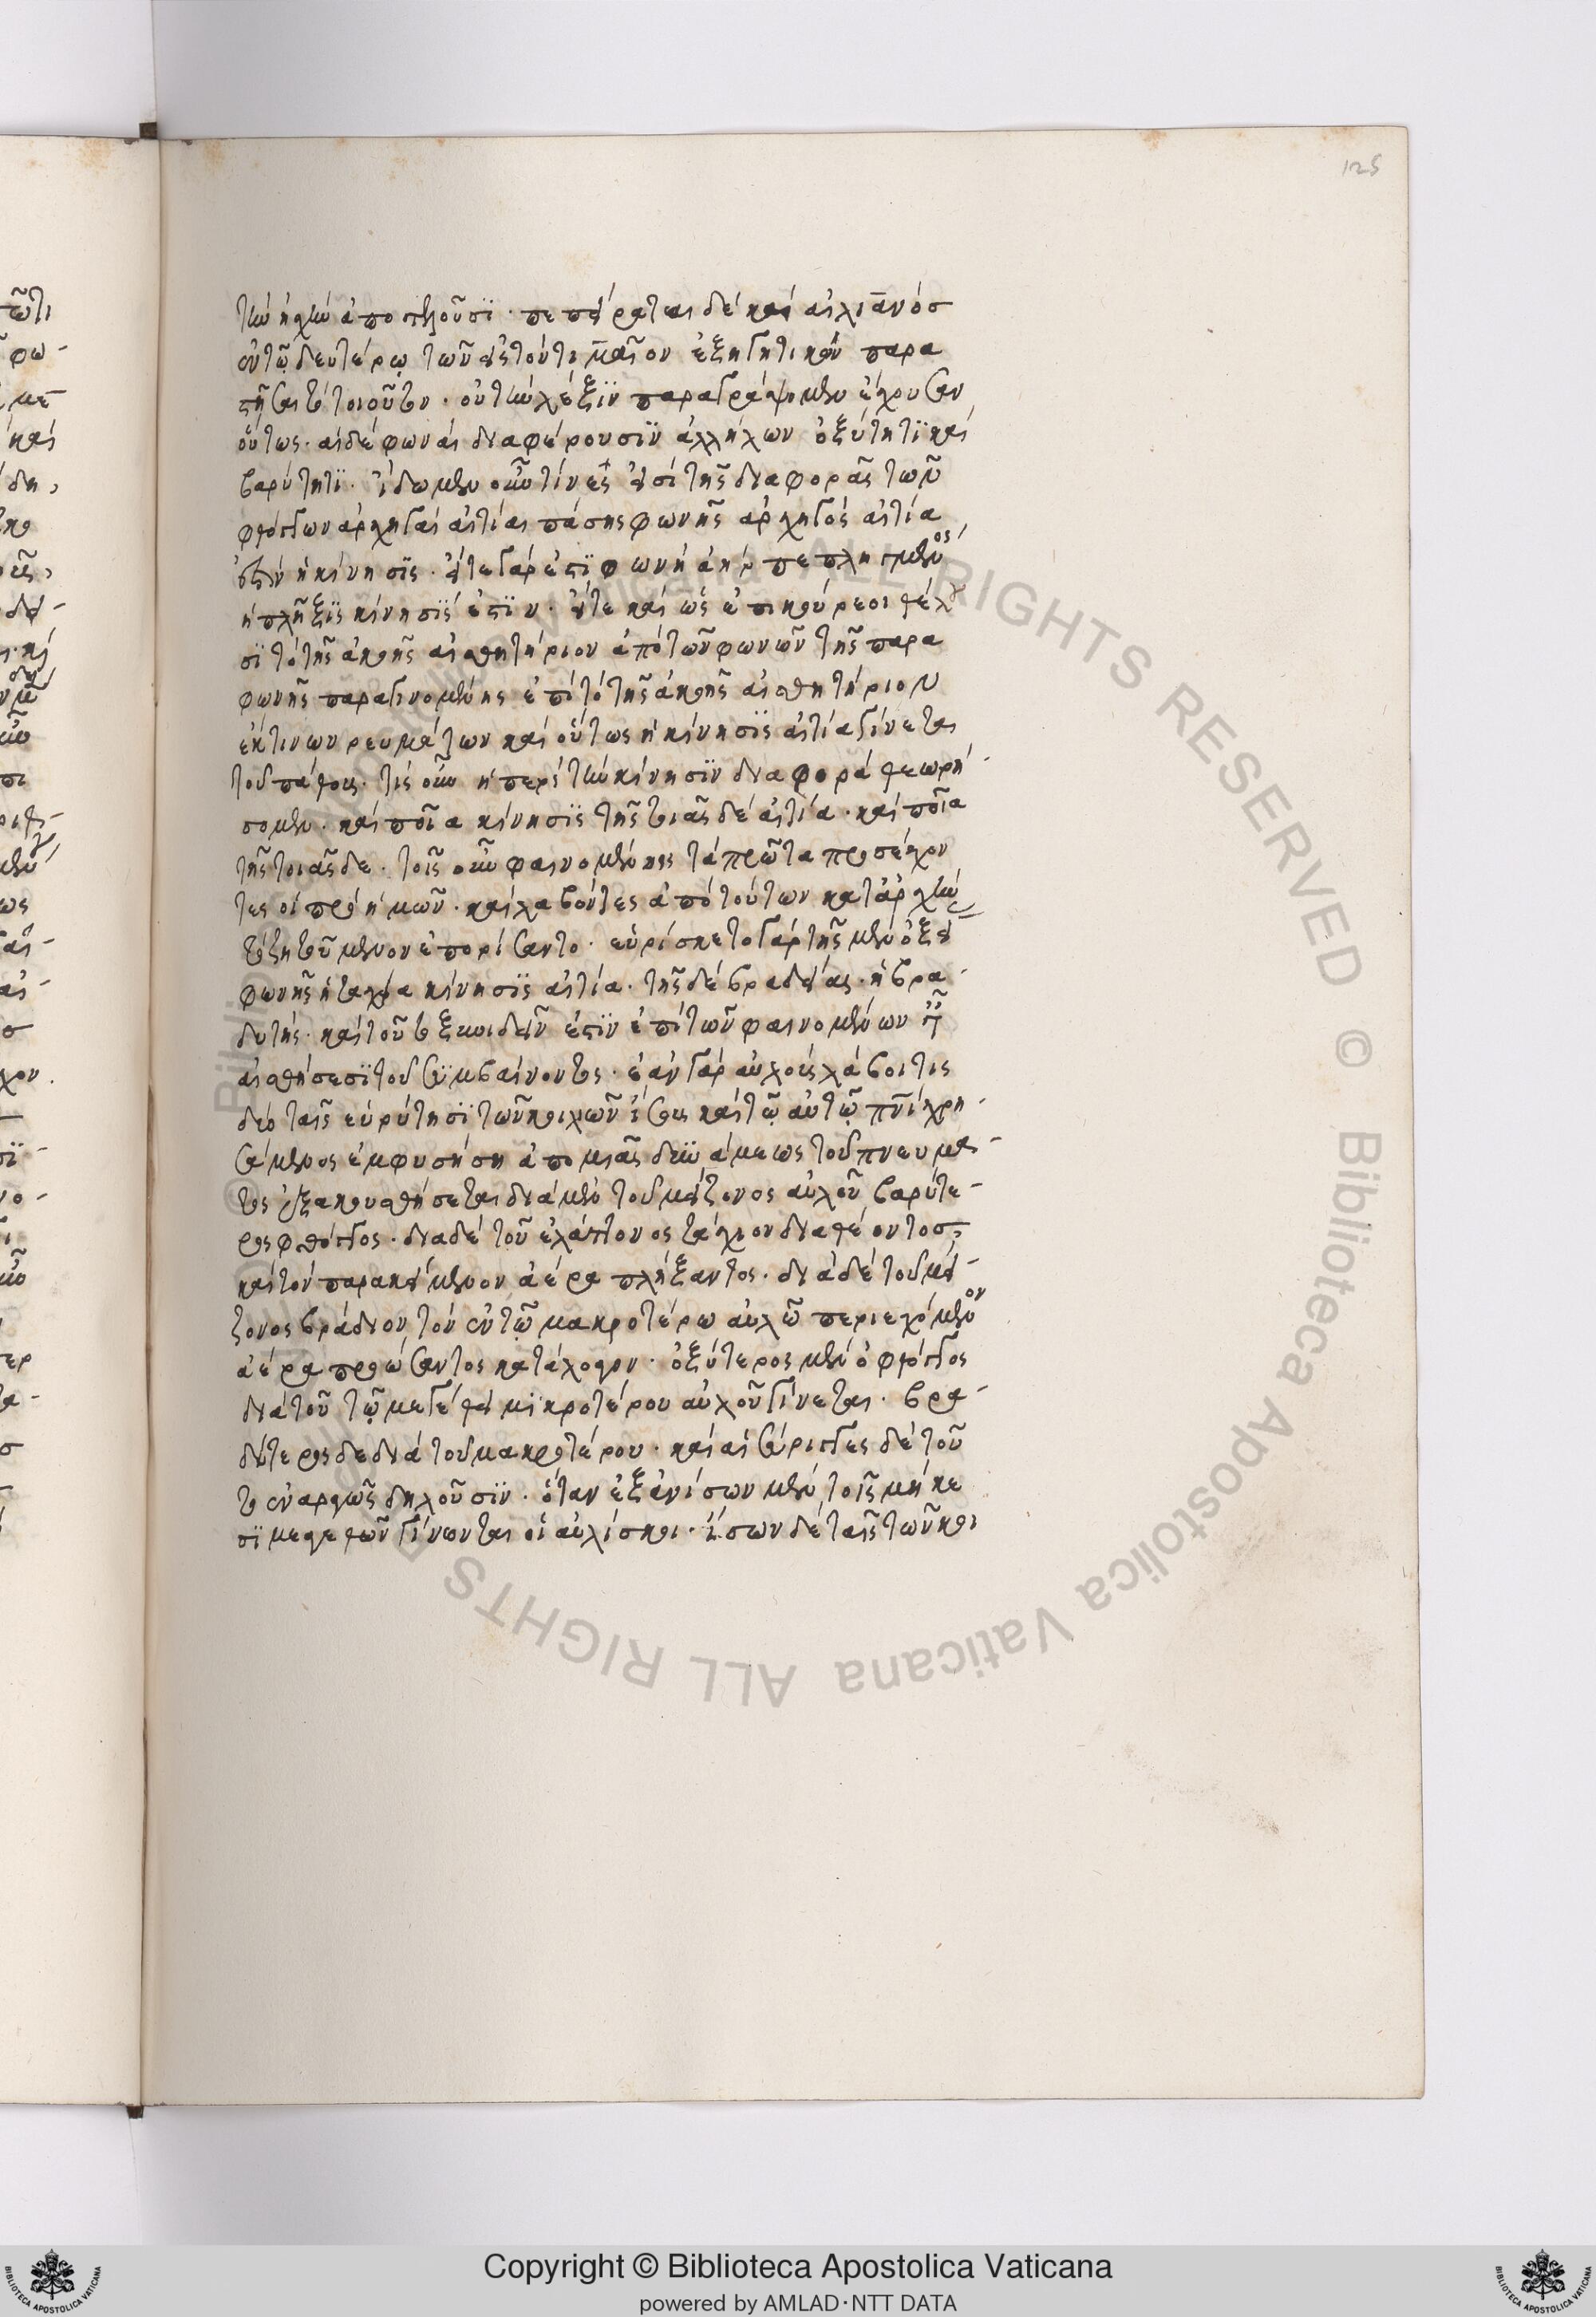 125
τὴν ἠχὴν ἀποτελοῦσϊ · πεπείραται δὲ καὶ αἰλιανὸσ
ἐν τῷ δευτέρῳ τῶν εἰς τὸν τίμαιον ἐξηγητικῶν παρα
στῆσαι τὸ τοιοῦτον · οὗ τὴν λέξϊν παραγράψομεν ἔχουσαν
οὕτως · αἱ δὲ φωναὶ διαφέρουσϊν ἀλλήλων ὀξύτητϊ καὶ
βαρύτητϊ · ἴδωμεν οὖν τίνες εἰσὶ τῆς διαφορᾶς τῶν
φθόγγων ἀρχηγαὶ αἰτίαι πάσης φωνῆς ἀρχηγὸς αἰτία
ἐστὶν ἡ κίνησϊς · εἴτε γάρ ἐστϊ φωνὴ ἀὴρ πεπληγμένος
ἡ πλῆξϊς κίνησϊς ἐστϊν · εἴτε καὶ ὡς ἐπικούρεοι θέλου
σϊ τὸ τῆς ἀκοῆς αἰσθητήριον ἀπὸ τῶν φωνῶν τῆς παρα
φωνῆς παραγινομένης ἐπὶ τὸ τῆς ἀκοῆς αἰσθητήριον
ἔκ τινων ρευμάτων καὶ οὕτως ἡ κίνησϊς αἰτία γίνεται
τοῦ πάθους · τίς οὖν ἡ περὶ τὴν κίνησϊν διαφορὰ θεωρή-
σομεν · καὶ ποῖα κίνησϊς τῆς τοιᾶς δὲ αἰτία · καὶ ποῖα
τῆς τοιᾶς δε · τοῖς οὖν φαινομένοις τὰ πρῶτα προσέχον
τες οἱ πρὸ ἡμῶν · καὶ λαβόντες ἀπὸ τούτων κατ' ἀρχὴν
τὸ ζητούμενον ἐπορίσαντο · εὑρίσκετο γὰρ τῆς μὲν ὀξεί
φωνῆς ἡ ταχεῖα κίνησϊς αἰτία · τῆς δὲ βραδείας · ἡ βρα-
δυτής · καὶ τοῦτο ἐξ ἐστϊν ἐπὶ τῶν φαινομένων
αἰσθήσεσϊ τοῦ συμβαίνοντος · ἐὰν γὰρ αὐλοὺς λάβοι τις
δύο ταῖς εὐρύτησϊ τῶν κοιλιῶν ἴσους καὶ τῷ αὐτῷ πνι χρη-
σάμενος ἐμφυσήση ἀπὸ μιᾶς δυνάμεως τοῦ πνευμα-
τος ἐξακουσθήσεται διὰ μὲν τοῦ μείζονος αὐλοῦ βαρύτε-
ρος φθόγγος · διὰ δὲ τοῦ ἐλάττονος τάχιον διαθέοντοσ,
καὶ τὸν παρακείμενον ἀέρα πλήξαντος · διὰ δὲ τοῦ μεί-
ζονος βράδιον τὸν ἐν τῷ μακροτέρω αὐλῷ περιεχόμενον
ἀέρα προώσαντος κατάλογον · ὀξύτερος μὲν ὁ φθόγγος
διὰ τοῦ τῷ μεγέθει μϊκροτέρου αὐλοῦ γίνεται · βρα-
δύτερος δε διὰ τοῦ μακροτέρου · καὶ αἱ σύριγγες δὲ τοῦ
το ἐναργῶς δηλοῦσϊν · ὅταν ἐξ ἀνίσων μὲν τοῖς μήκε
σϊ μεγεθῶν γίνωνται οἱ αὐλίσκοι · ἴσων δὲ ταῖς τῶν κοι
Copyright © Biblioteca Apostolica Vaticana
powered by AMLAD·NTT DATA